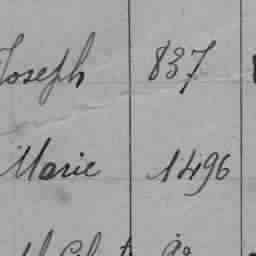 Joseph 837
Marie 1496